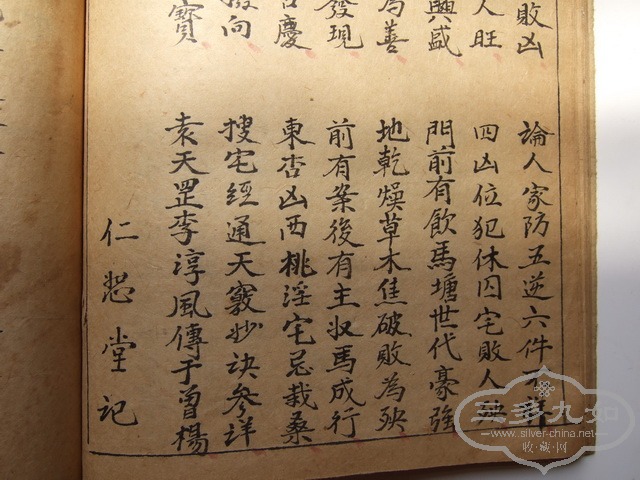 敗凶 論人家防五逆六件不
人旺 四凶位犯休囚宅敗人殃
興盛 門前有飲馬塘世代豪強
為善 地乾燥草木焦破敗為殃
發現 前有案後有主収馬成行
慶 東杏凶西桃淫宅忌栽桑
向 搜宅經通天竅妙訣參詳
寶 袁天罡李淳風傳于曾楊
仁恕堂記
多九如
www.silver-china.net
收藏网